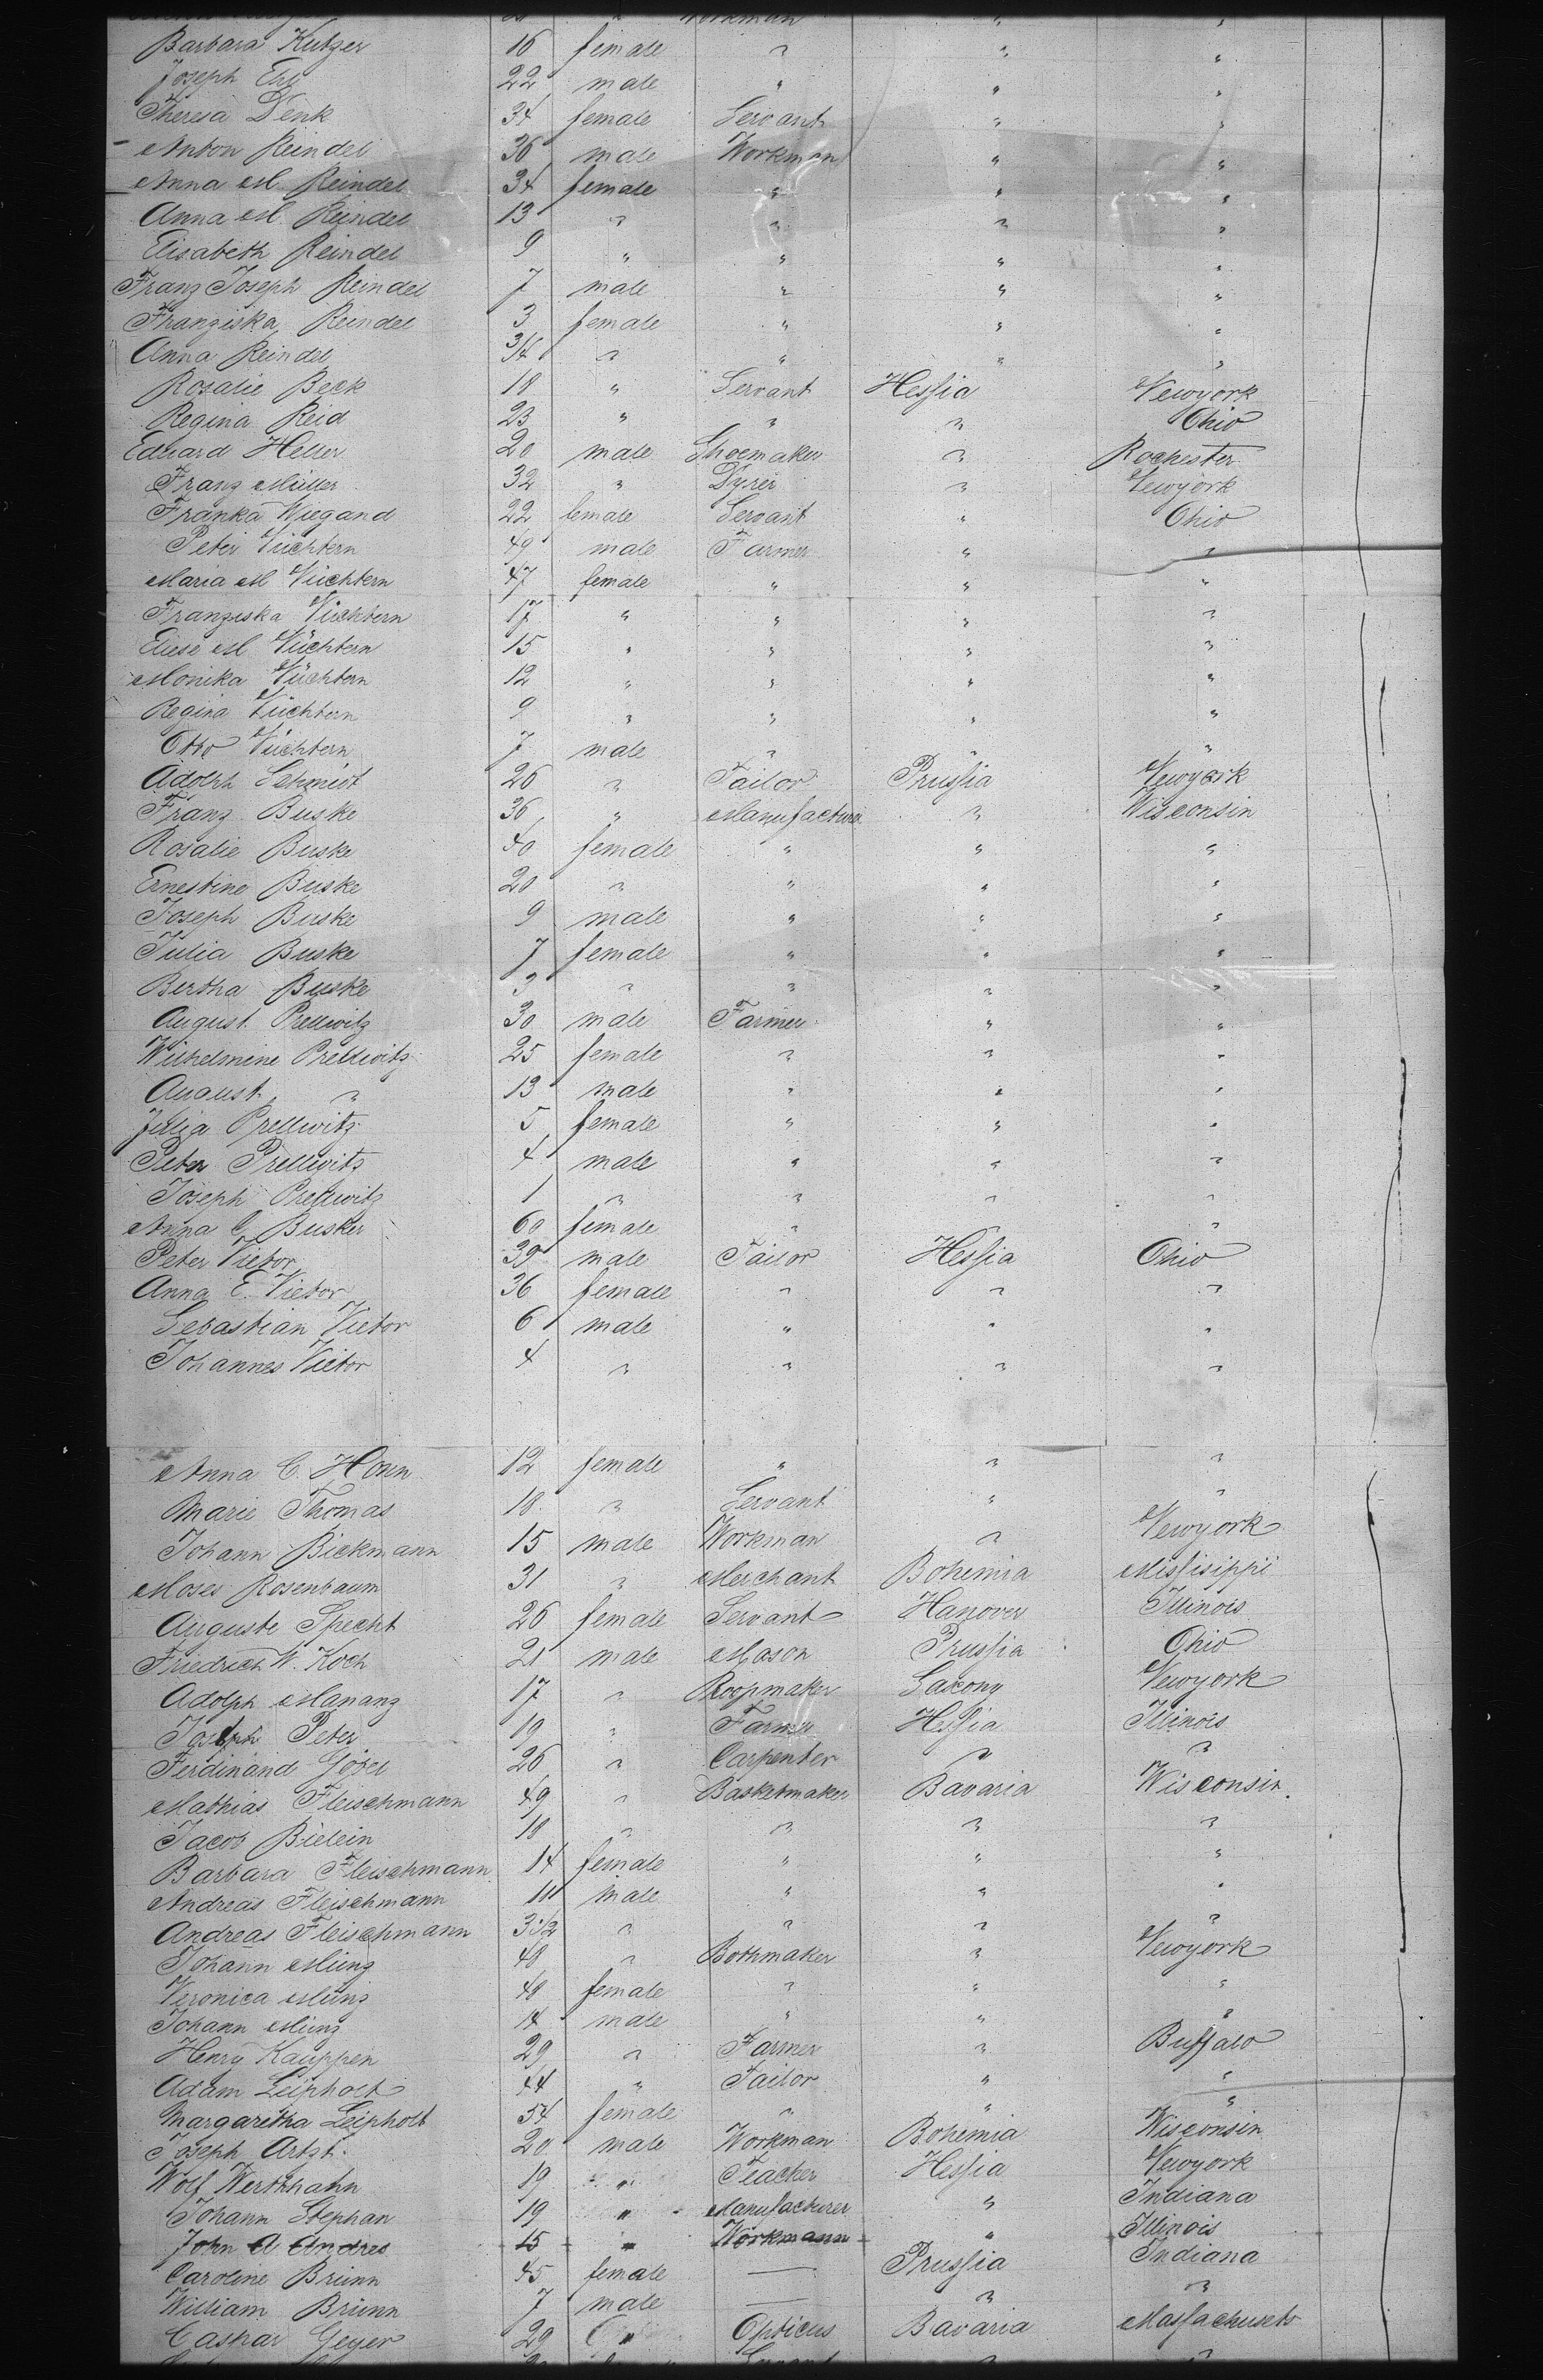 Workman " "
Barbara Kutzer 16 female " " "
Joseph 22 male " " "
Theresa Denk 34 female Servant " "
Anton Reindel 36 male Workman " "
Anna M. Reindel 34 female " " "
Anna M. Reindel 13 " " " "
Elisabeth Reindel 9 " " " "
Franz Joseph Reindel 7 male " " "
Franziska Reindel 3 female " " "
Anna Reindel " " " "
Rosalie Beck 18 " Servant Hessia Newyork
Regina Reid 23 " " " Ohio
Eduard Heller 20 male Shoemaker " Rochester
Franz Müller 32 " Dyrer " Newyork
Franka Wiegand 22 female Servant " Ohio
Peter Nüchtern 49 male Farmer " "
Maria M Nüchtern 47 female " " "
Franziska Nüchtern 17 " " " "
Eliese M Nüchtern 15 " " " "
Monika Nüchtern 12 " " " "
Regina Nüchtern 9 " " " "
Otto Nüchtern 7 male " " "
Adolph Schmidt 26 " Tailor Prussia Newyork
Franz Buske 36 " Manufacturer " Wisconsin
Rosalie Buske 40 female " " "
Ernestine Buske 20 " " " "
Joseph Buske 9 male " " "
Julia Buske 7 female " " "
Bertha Buske 3 " " " "
August Prellwitz 30 male Farmer " "
Wilhelmine Prellwitz 25 female " " "
August " 13 male " " "
Julia Prellwitz 5 female " " "
Peter Prellwitz 4 male " " "
Joseph Prellwitz 1 " " " "
Anna C. Busker 60 female " " "
Peter Vietor 39 male Tailor Hessia Ohio
Anna E. Vietor 36 female " " "
Sebastian Vietor 6 male " " "
Johannes Vietor 4 " " " "
Anna C. Horn 12 female " " "
Marie Thomas 18 " Servant " "
Johann Bickmann 15 male Workman " Newyork
Moses Rosenbaum 31 " Merchant Bohemia Missisippi
Auguste Specht 26 female Servant Hanover Illinois
Friedrich W. Koch 21 male Mason Prussia Ohio
Adolph Mananz 17 " Roopmaker Saxony Newyork
Joseph Peter 19 " Farmer Hessia Illinois
Ferdinand Göbel 26 " Carpenter " "
Mathias Fleischmann 49 " Basketmaker Bavaria Wisconsin.
Jacob Bielein 18 " " " "
Barbara Fleischmann 14 female " " "
Andreas Fleischmann male " " "
Andreas Fleischmann 3 1/2 " " " "
Johann Münz 48 " Bothmaker " Newyork
Veronica Münz 48 female " " "
Johann Münz 14 male " " "
Henry Kauppen 29 " Farmer " Buffalo
Adam Leipholt 44 " Tailor " "
Margaretha Leipholt 54 female " " "
Joseph Artzt. 20 male Workman Bohemia Wisconsin
Wolf Werthhahn 19 " Teacher Hessia Newyork
Johann Stephan 19 " Manufacturer " Indiana
John A Andres 15 " Workmann " Illinois
Caroline Brünn 45 female — Prussia Indiana
William Brünn 7 male — " "
Caspar Geyer 29 " Opticus Bavaria Massachusets